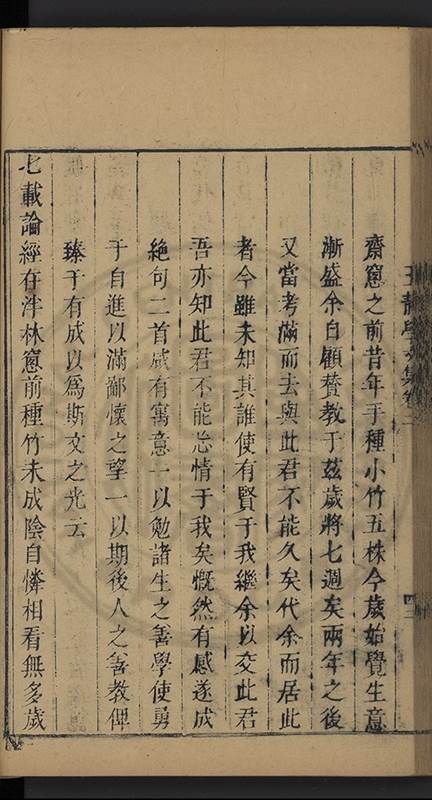 齋窻之前昔年手種小竹五株今歲始覺生意
漸盛余自顧賛教于茲歲將七週矣兩年之後
又當考滿而去與此君不能久矣代余而居此
者今雖未知其誰使有賢于我繼余以交此君
吾亦知此君不能忘情于我矣慨然有感遂成
絶句二首咸有寓意一以勉諸生之善學使勇
于自進以滿鄙懷之望一以期後人之善教俾
臻于有成以為斯文之光云
七載論經在泮林窻前種竹未成陰自憐相看無多歲